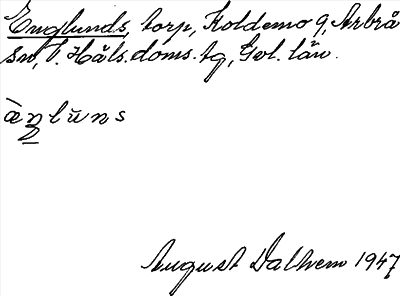 Englunds, torp, Koldemo 9, Arbrå
sn, V. Häls. doms. tg, Gvl. län.
æ̀ŋlŭns
August Dalhem 1947